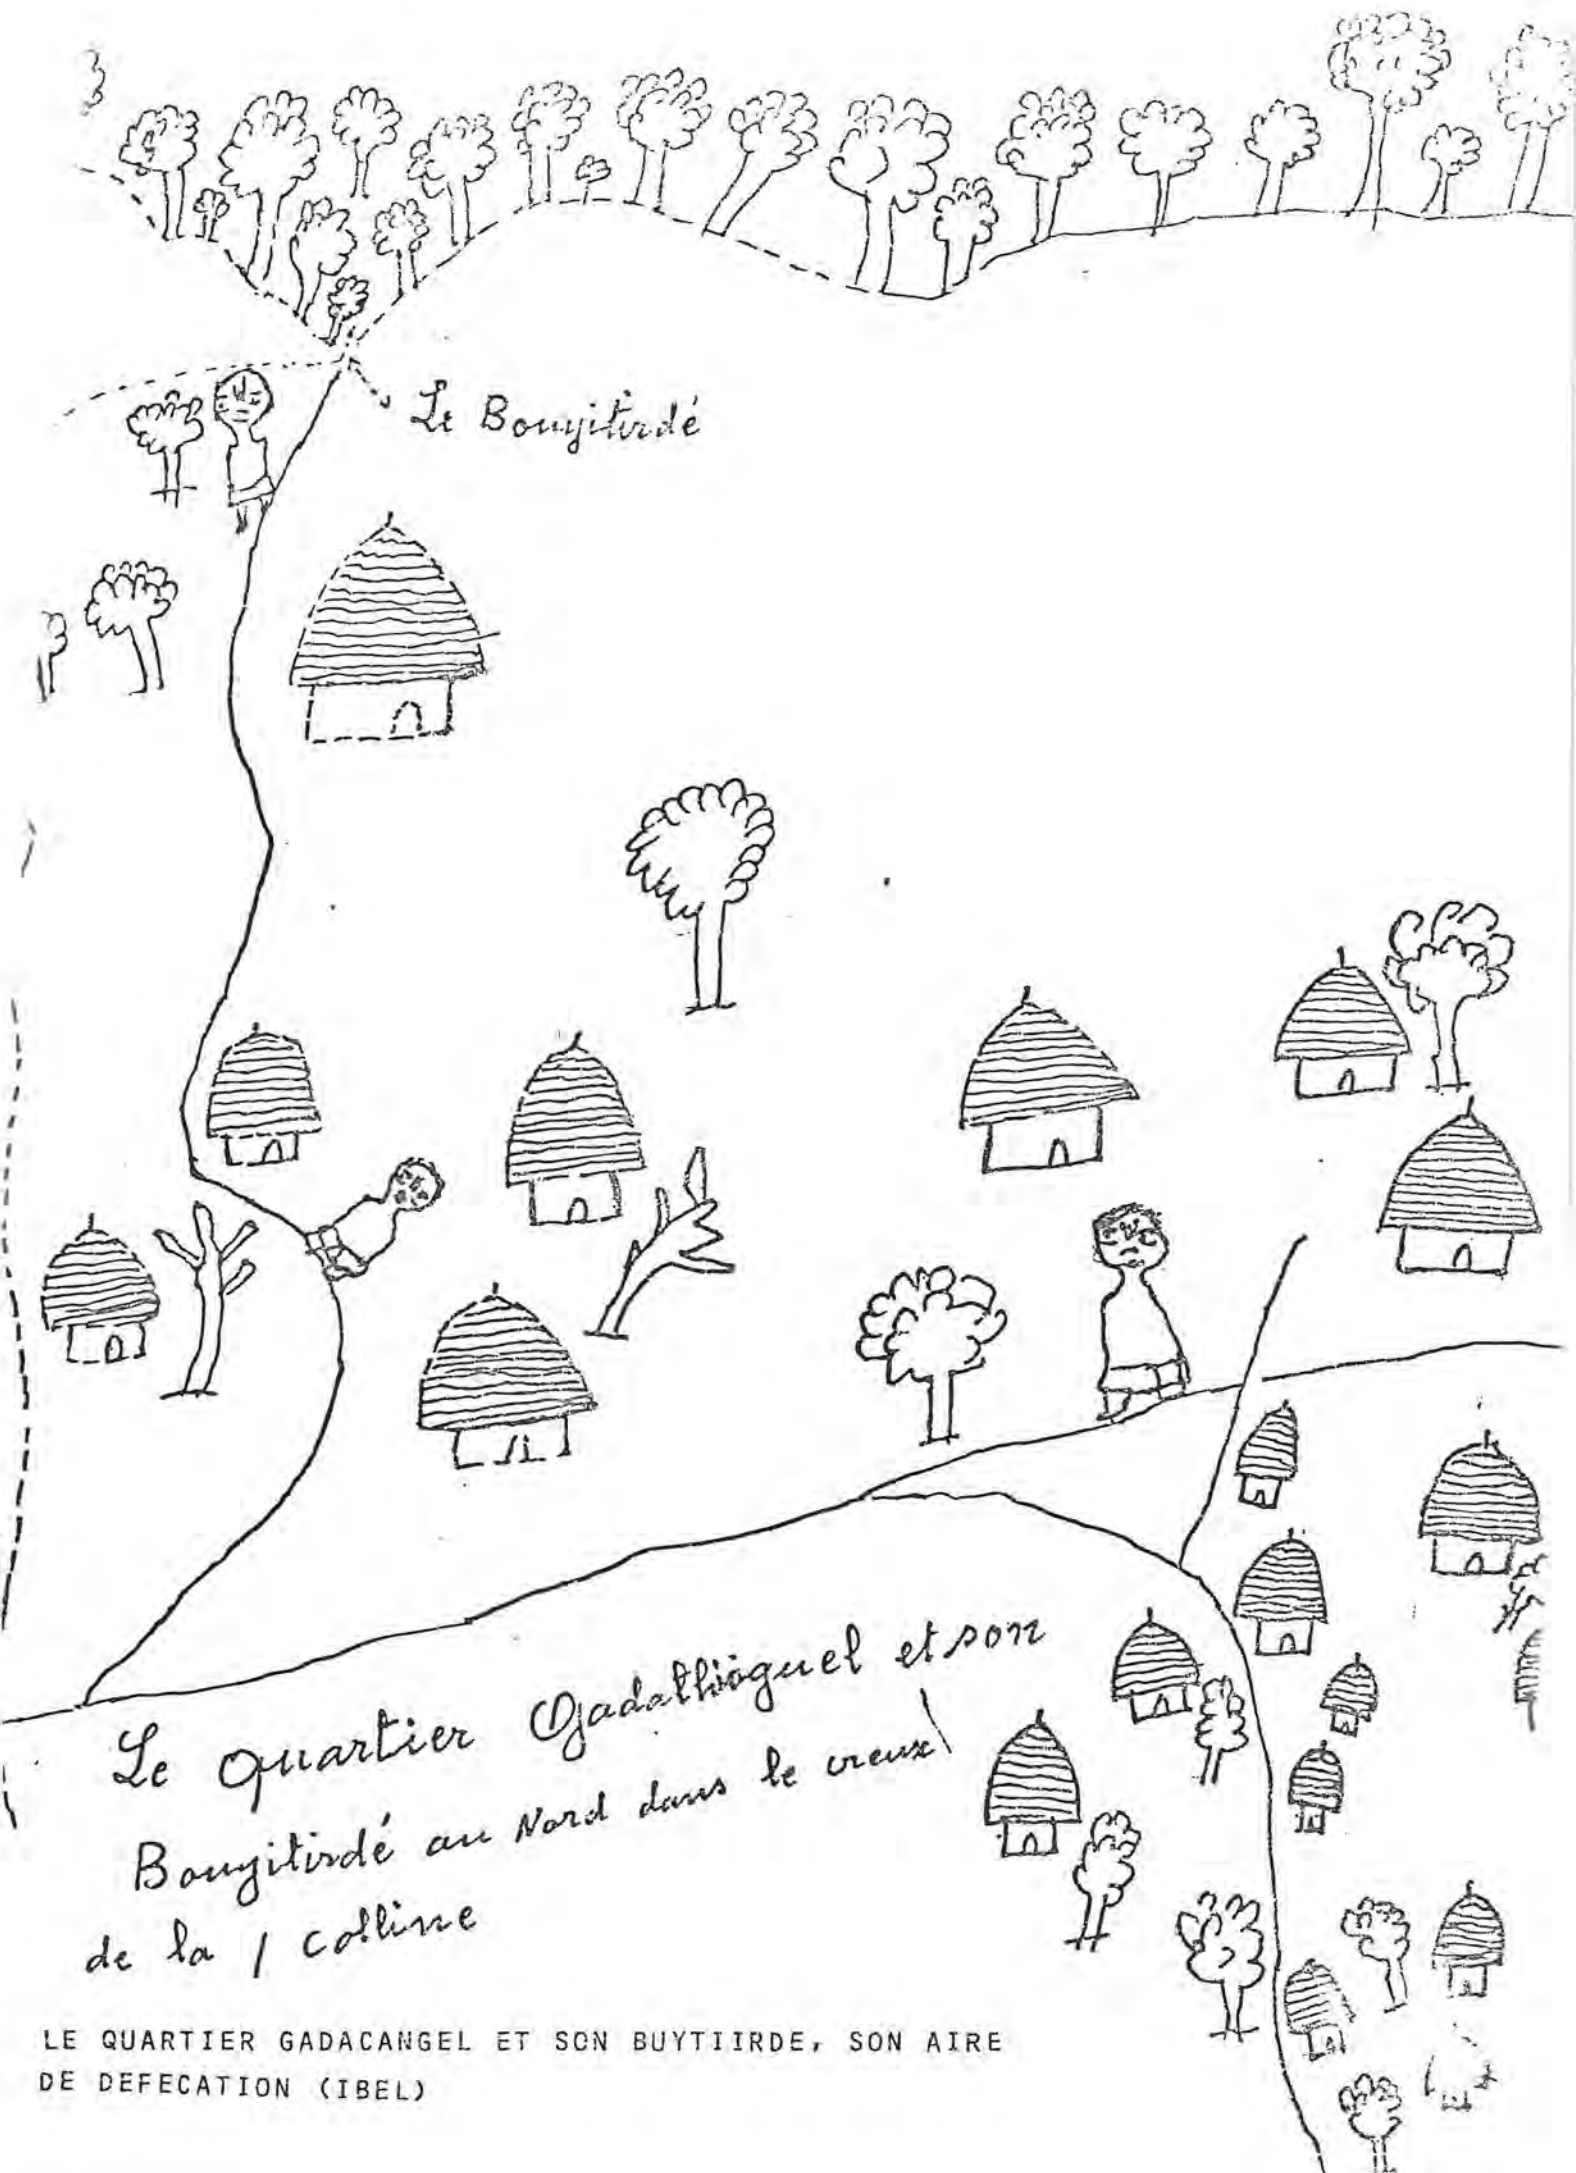 Le Bouyitirdé
Le quartier Gadathiöguel et son
Bouyitirdé au Nord dans le creux
de la colline
LE QUARTIER GADACANGEL ET SON BUYTIIRDE, SON AIRE
DE DEFECATION (IBEL)